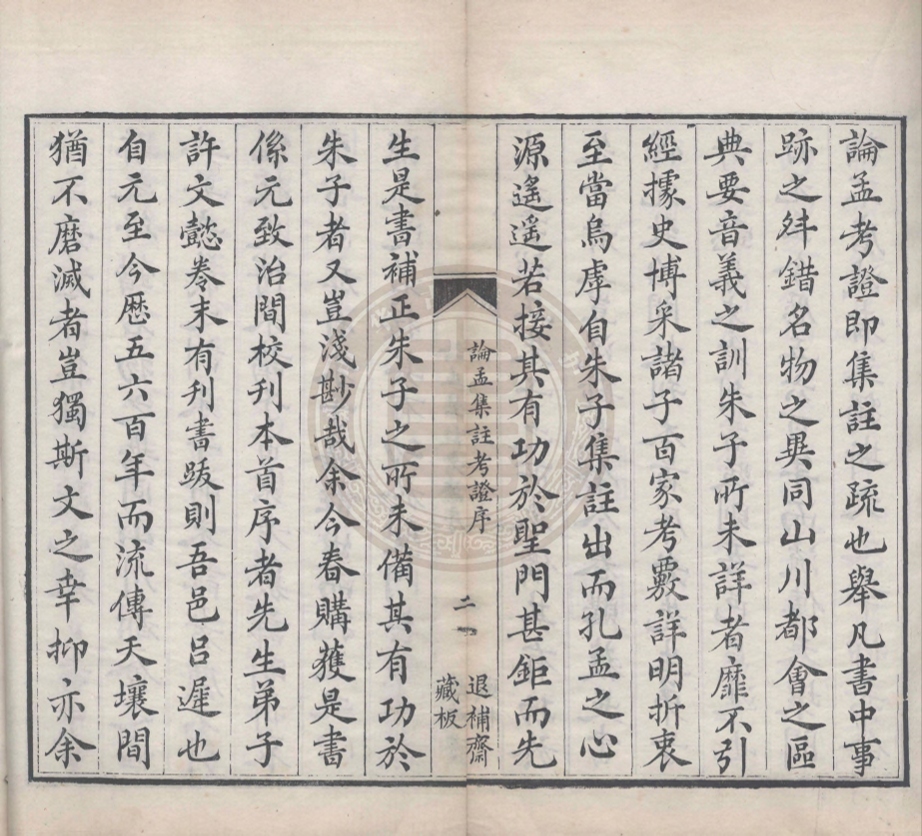 論孟考證即集註之疏也舉凡書中事
跡之舛錯名物之異同山川都會之區
典要音義之訓朱子所未詳者靡不引
經據史博采諸子百家考覈詳明折衷
至當烏虖自朱子集註出而孔孟之心
源遙遙若接其有功於聖門甚鉅而先
論孟集註考證序
二
退補齋
藏板
生是書補正朱子之所未備其有功於
朱子者又豈淺尠哉余今春購獲是書
係元致治間校刊本首序者先生弟子
許文懿卷末有刊書跋則吾邑呂遲也
自元至今歷五六百年而流傳天壤間
猶不磨滅者豈獨斯文之幸抑亦余